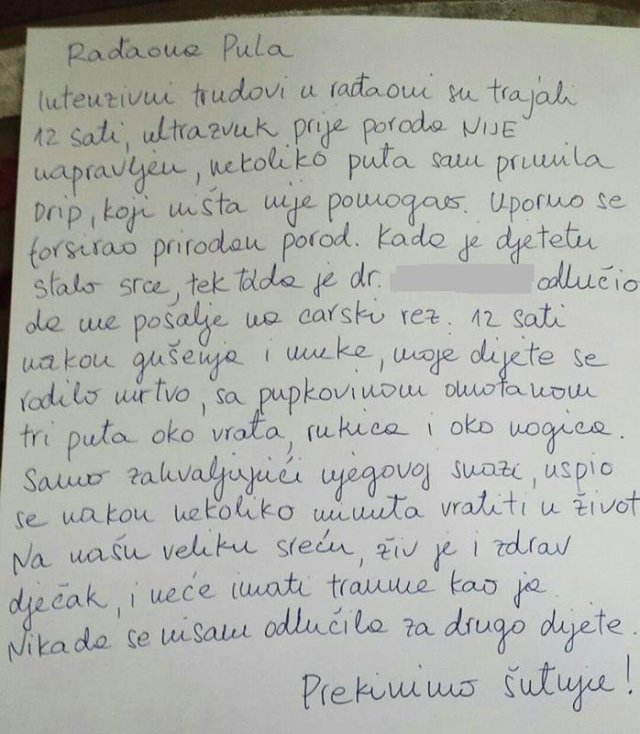 Rađaona Pula
Intenzivni trudovi u rađaoni su trajali
12 sati, ultrazvuk prije poroda NIJE
napravljen, nekoliko puta sam primila
Drip, koji ništa nije pomogao. Uporno se
forsirao prirodan porod. Kada je djetetu
stalo srce, tek tada je dr. odlučio
da me pošalje na carski rez. 12 sati
nakon gušenja i muke, moje dijete se
rodilo mrtvo, sa pupkovinom omotanom
tri puta oko vrata, rukica i oko nogica.
Samo zahvaljujući njegovoj snazi, uspio
se nakon nekoliko minuta vratiti u život
Na našu veliku sreću, živ je i zdrav
dječak, i neće imati traume kao ja.
Nikada se nisam odlučila za drugo dijete.
Prekinimo šutnju!